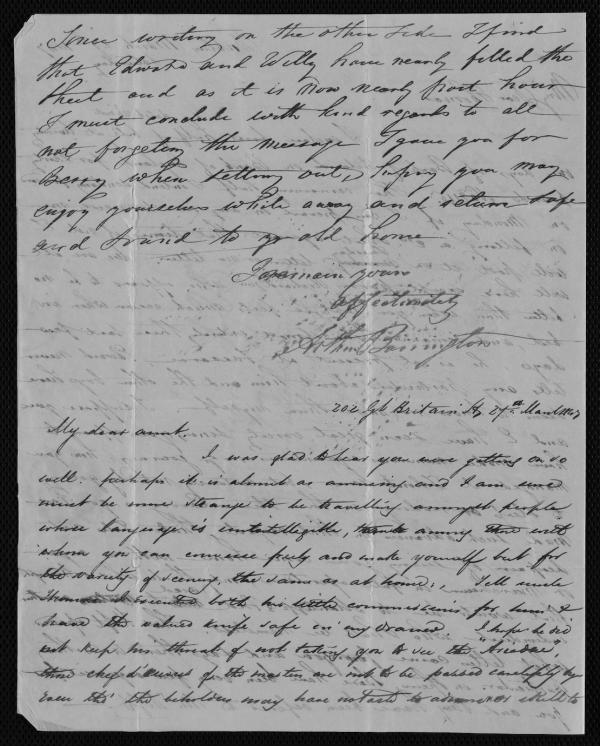 Since writing on the other side I find
that Edward and Willy have nearly filled the
sheet and as it is now nearly post hour
I must conclude with kind regards to all
not forgeting the message I gave you for
Bessy when setting out, hoping you may
enjoy yourselves while away and return safe
and sound to yr old home
I remain yours
affectionately
Arthur Barrington
202 Gt Britain St 27th March
My dear aunt,
I was glad to hear you were getting on so
well. perhaps it is almost as amusing and I am sure
must be more strange to be travelling amongst people
whose language is unintelligible, than among those with
whom you can converse freely and make yourself but for
the variety of scenery, the same as at home., Tell uncle
Thomas I executed both his little commissions for him I
have the valued knife safe in my drawer. I hope he did
not keep his threat of not taking you to see the
those chef d'œuvres of the masters are not to be passed carelessly by
even tho' the beholders may have not taste to admire or skill to